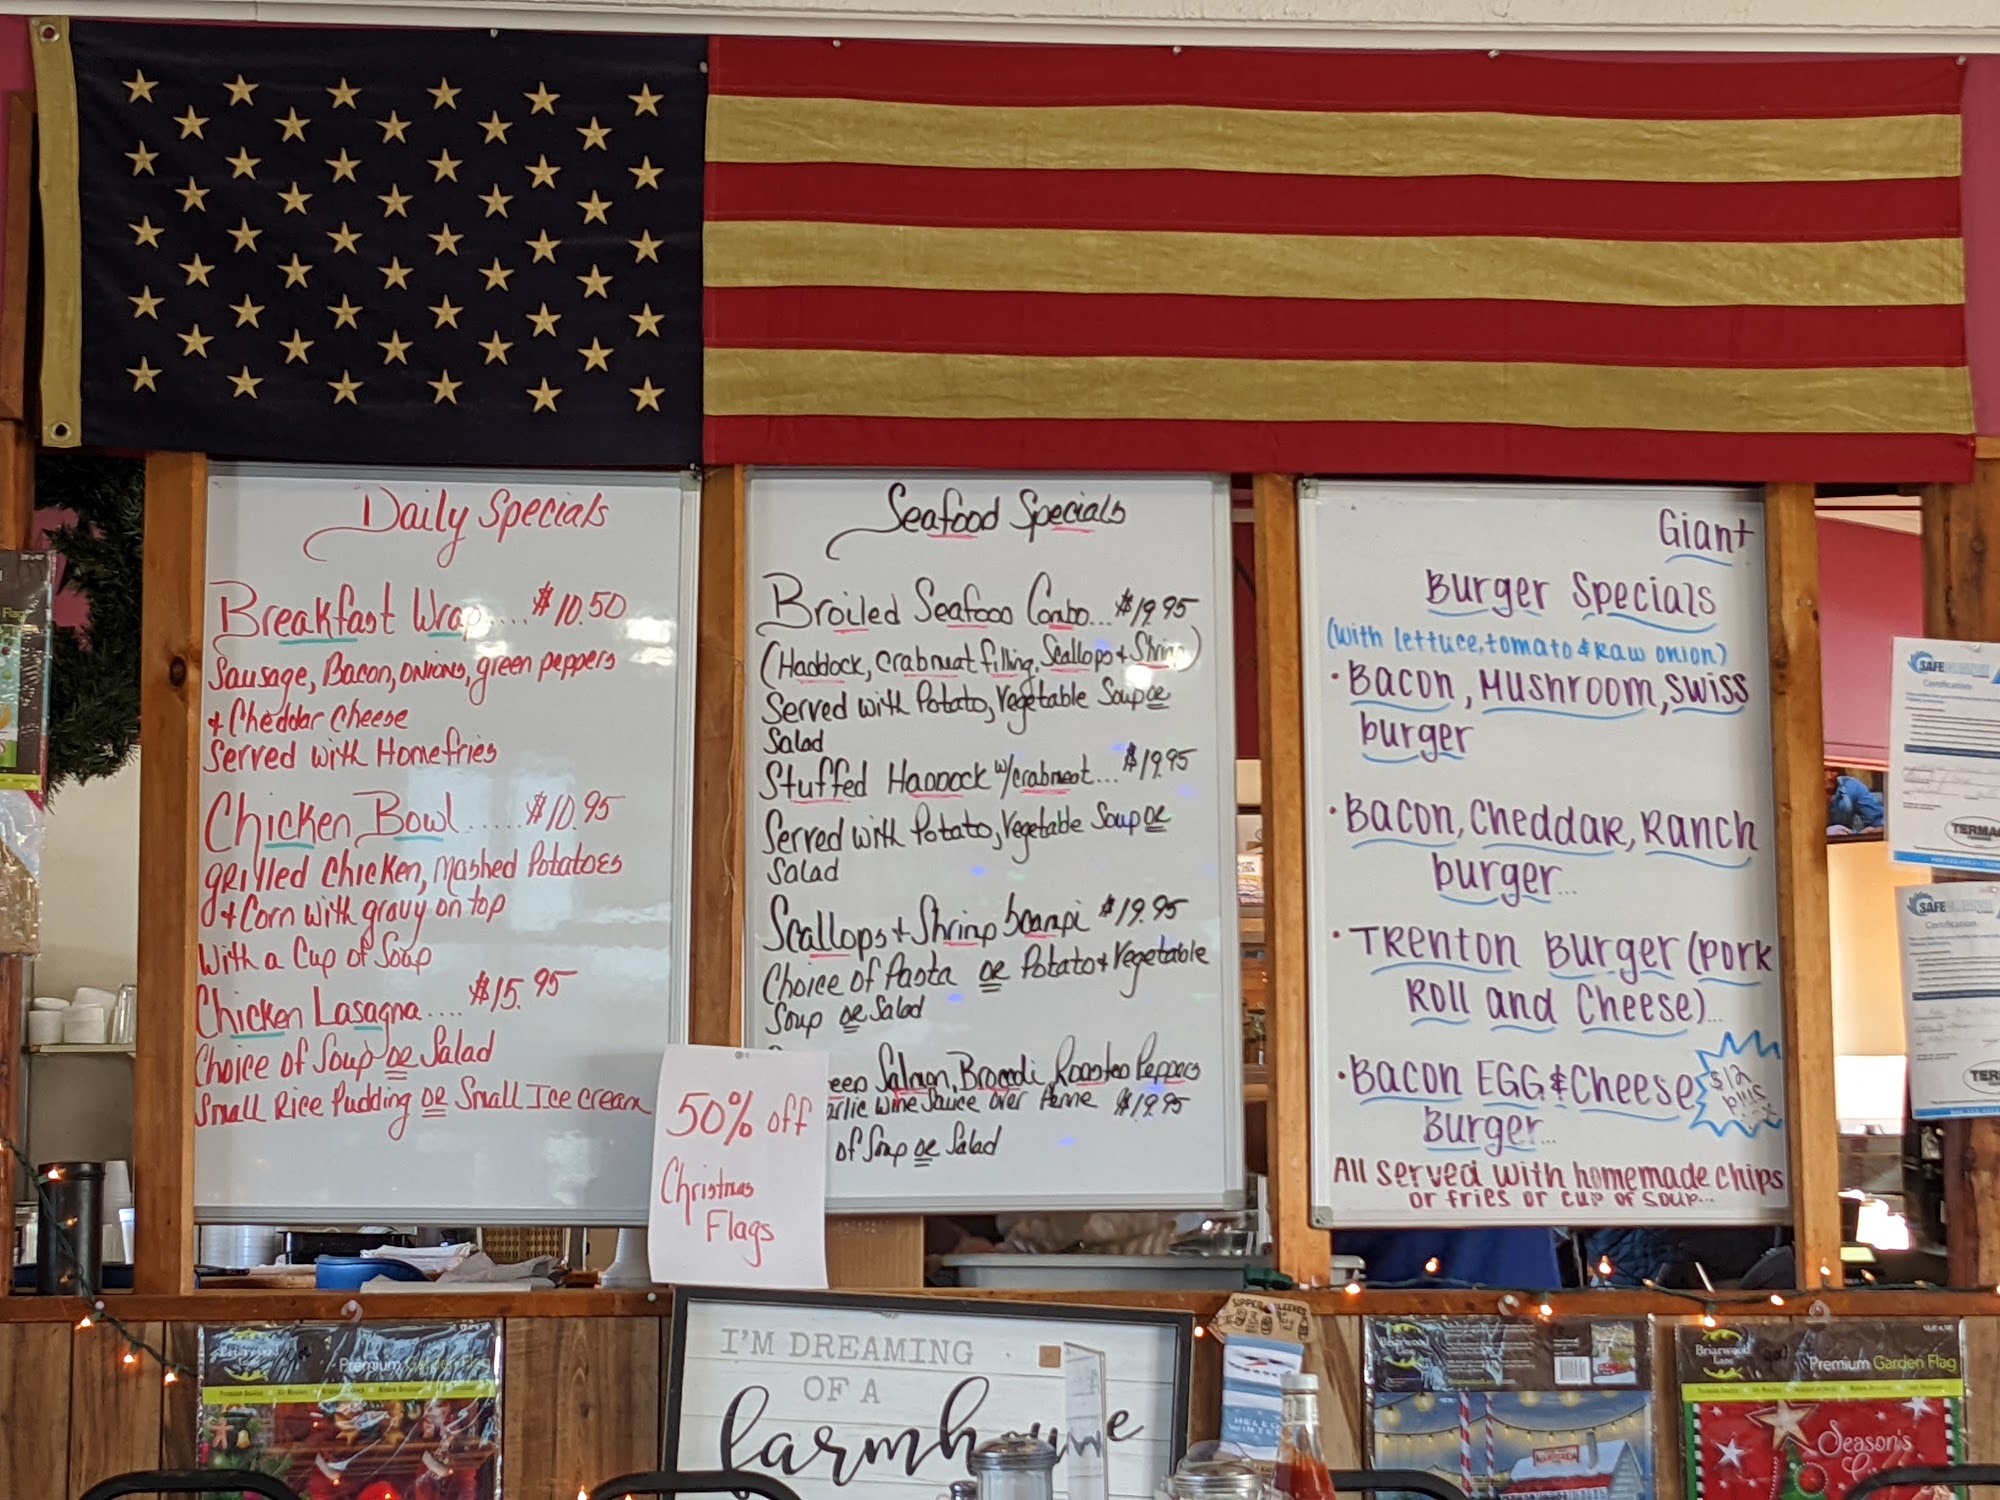 Daily Specials
Breakfast Wrap.... $10.50
Sausage, Bacon, onions, green peppers
& Cheddar Cheese
Served with Homefries
Chicken Bowl..... $10.95
grilled Chicken, Mashed Potatoes
& Corn with gravy on top
With a Cup of Soup
Chicken Lasagna.... $15.95
Choice of Soup or Salad
Small Rice Pudding or Small Ice cream
Seafood Specials
Broiled Seafood Combo... $19.95
(Haddock, Crabmeat filling, Scallops & Shrimp)
Served with Potato, Vegetable Soup or
Salad
Stuffed Haddock w/crabmeat... $19.95
Served with Potato, Vegetable Soup or
Salad
Scallops & Shrimp Scampi $19.95
Choice of Pasta or Potato & Vegetable
Soup or Salad
Salmon, Broccoli, Roasted Peppers
Wine Sauce over Penne $19.95
of Soup or Salad
Giant
Burger Specials
(with lettuce, tomato & Raw onion)
• Bacon, Mushroom, Swiss
burger
• Bacon, Cheddar, Ranch
burger...
• Trenton Burger (Pork
Roll and Cheese)...
• Bacon EGG & Cheese
Burger...
$12
plus
All served with homemade chips
or fries or cup of soup...
50% off
Christmas
Flags
I'M DREAMING
OF A
SIPPER SLEEVES
HELLO
WINTER
Briarwood
Lane
Premium Garden Flag
Briarwood
Lane
Premium Garden Flag
Season's
SAFE
Certification
SAFE
Certification